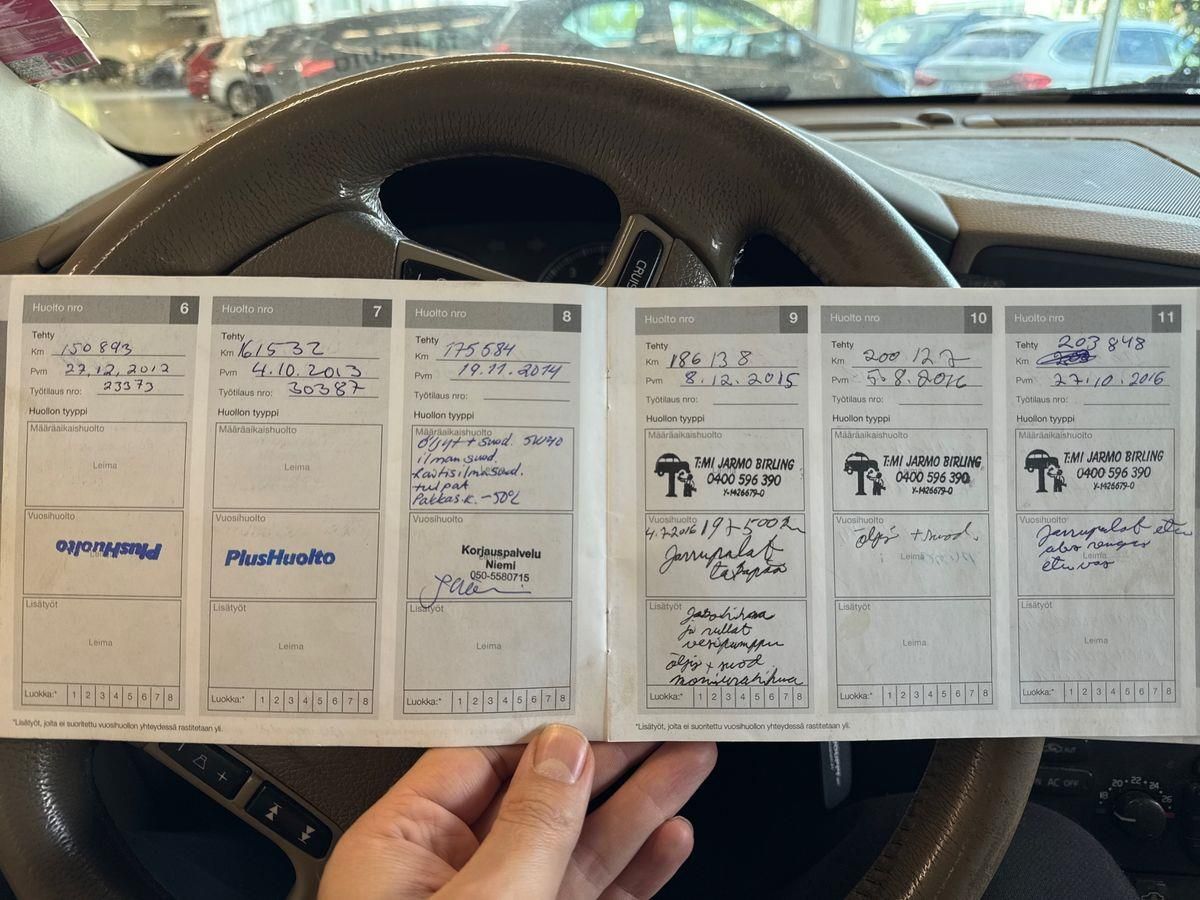 CRUIS
Huolto nro 6
Tehty
Km 150 893
Pvm 22.12.2012
Työtilaus nro: 23373
Huollon tyyppi
Määräaikaishuolto
Leima
Vuosihuolto
PlusHuolto
Lisätyöt
Leima
Luokka:* 1 2 3 4 5 6 7 8
Huolto nro 7
Tehty
Km 161532
Pvm 4.10.2013
Työtilaus nro: 30387
Huollon tyyppi
Määräaikaishuolto
Leima
Vuosihuolto
PlusHuolto
Lisätyöt
Leima
Luokka:* 1 2 3 4 5 6 7 8
Huolto nro 8
Tehty
Km 175684
Pvm 19.11.2014
Työtilaus nro:
Huollon tyyppi
Määräaikaishuolto
Öljyt + suod. 5W40
ilmansuod.
raitisilmasuod.
tulpat
Pakkas.k. -50°C
Vuosihuolto
Korjauspalvelu
Niemi
050-5580715
Lisätyöt
Leima
Luokka:* 1 2 3 4 5 6 7 8
*Lisätyöt, joita ei suoritettu vuosihuollon yhteydessä rastitetaan yli.
Huolto nro 9
Tehty
Km 186138
Pvm 8.12.2015
Työtilaus nro:
Huollon tyyppi
Määräaikaishuolto
T:MI JARMO BIRLING
0400 596 390
Y-1426679-0
Vuosihuolto
4.7.2016 197500km
Jarrupalat
takapää
Lisätyöt
Jakohihna
ja rullat
vesipumppu
öljy + suod
moniurahihna
Luokka:* 1 2 3 4 5 6 7 8
Huolto nro 10
Tehty
Km 200.127
Pvm 5.8.2016
Työtilaus nro:
Huollon tyyppi
Määräaikaishuolto
T:MI JARMO BIRLING
0400 596 390
Y-1426679-0
Vuosihuolto
öljy + suod.
Leima
Lisätyöt
Leima
Luokka:* 1 2 3 4 5 6 7 8
Huolto nro 11
Tehty 203848
Km
Pvm 27.10.2016
Työtilaus nro:
Huollon tyyppi
Määräaikaishuolto
T:MI JARMO BIRLING
0400 596 390
Y-1426679-0
Vuosihuolto
Jarrupalat etu
abs rengas
Leima
etu vas
Lisätyöt
Leima
Luokka:* 1 2 3 4 5 6 7 8
*Lisätyöt, joita ei suoritettu vuosihuollon yhteydessä rastitetaan yli.
AC OFF
18 20 22 24 26